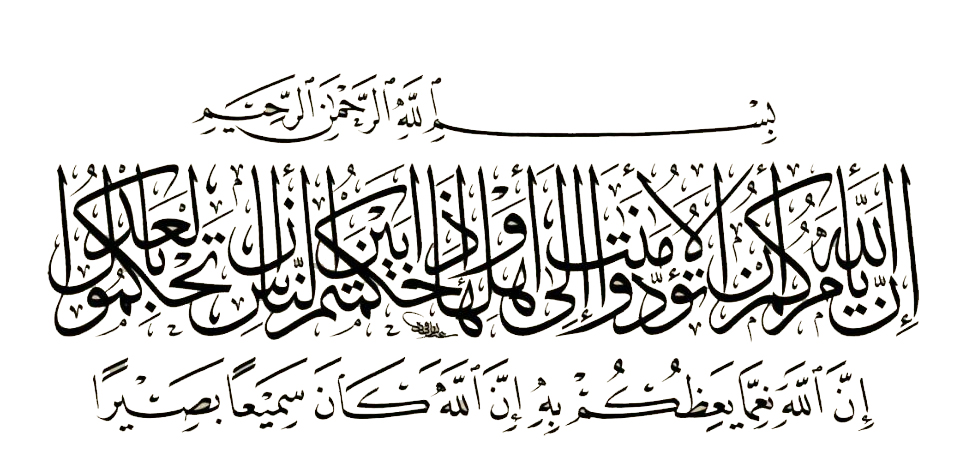 بِسْمِ ٱللَّهِ ٱلرَّحْمَٰنِ ٱلرَّحِيمِ
إِنَّ اللَّهَ يَأْمُرُكُمْ أَنْ تُؤَدُّوا الْأَمَانَاتِ إِلَىٰ أَهْلِهَا وَإِذَا حَكَمْتُمْ بَيْنَ النَّاسِ أَنْ تَحْكُمُوا بِالْعَدْلِ
إِنَّ ٱللَّهَ نِعِمَّا يَعِظُكُمْ بِهِۦ إِنَّ ٱللَّهَ كَانَ سَمِيعًا بَصِيرًا